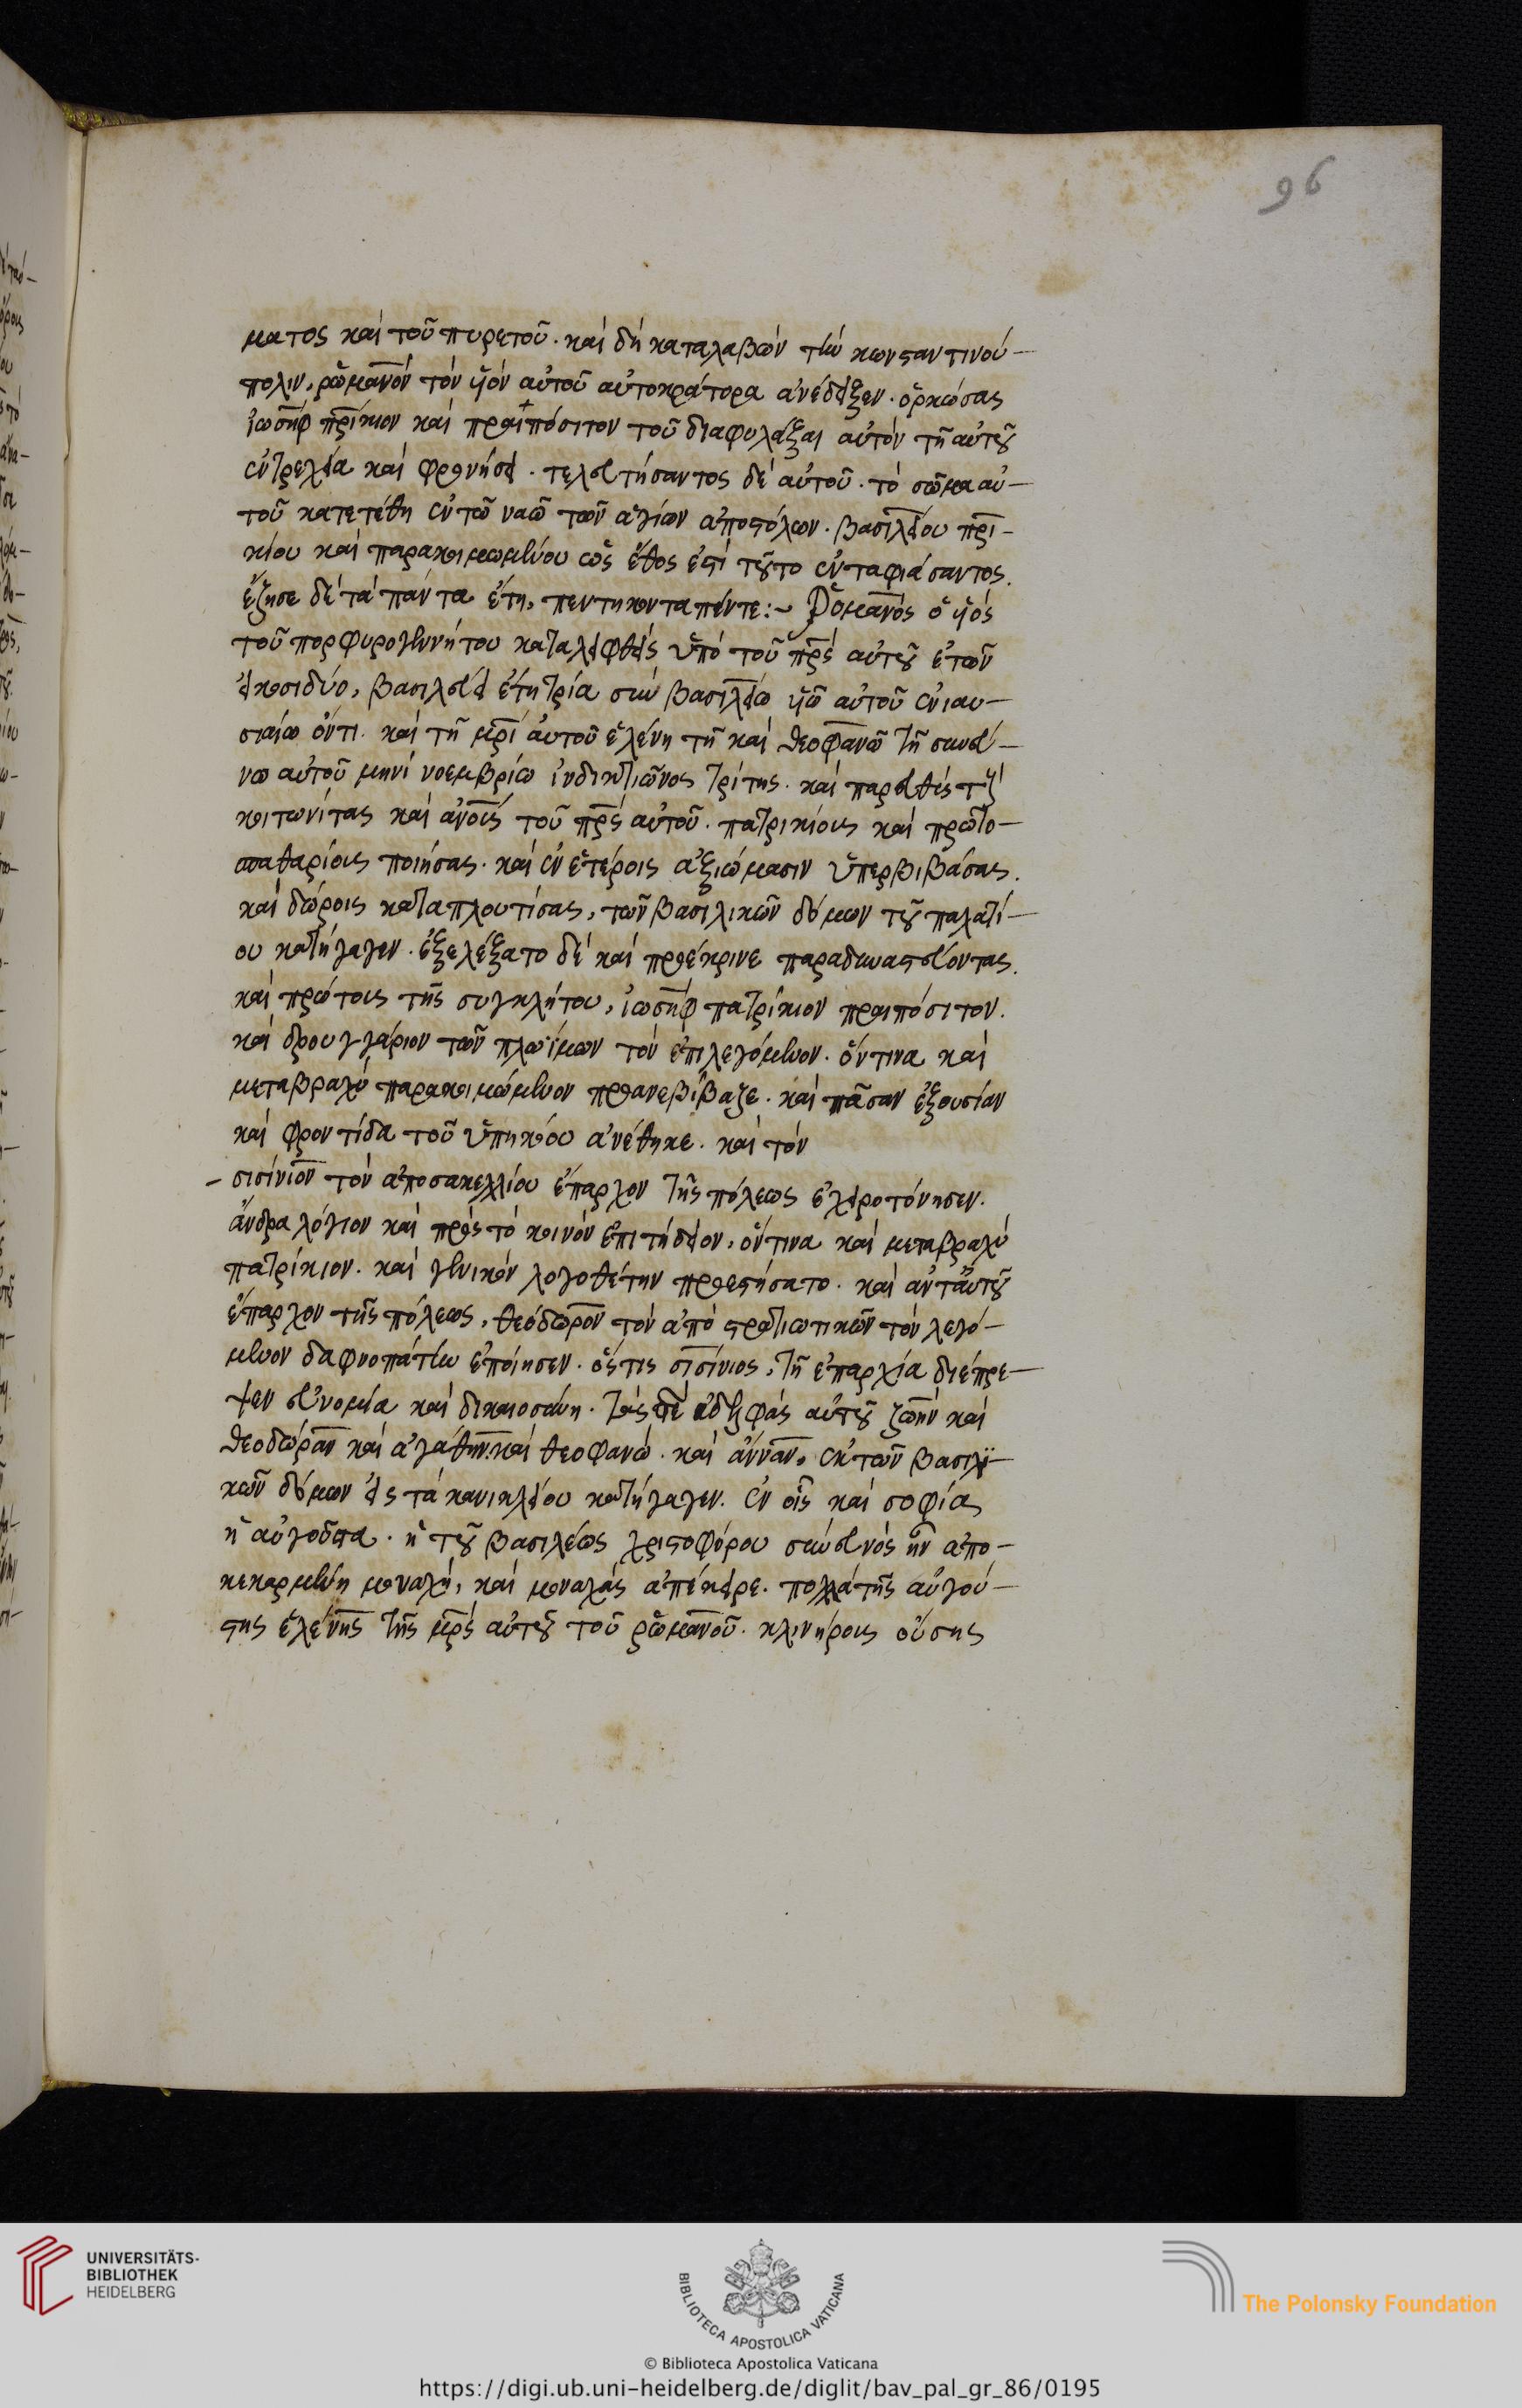 96
ματος καὶ τοῦ πυρετοῦ· καὶ δὴ καταλαβὼν τὴν κωνσταντινού-
πολιν, ῥωμανὸν τὸν υἱὸν αὐτοῦ αὐτοκράτορα ἀνέδειξεν· ὁρκώσας
ἰωσὴφ πρίκιον καὶ πραιπόσιτον τοῦ διαφυλάξαι αὐτὸν τῇ αὐτοῦ
ἐντρεχεία καὶ φρονήσει· τελευτήσαντος δὲ αὐτοῦ· τὸ σῶμα αὐ-
τοῦ κατετέθη ἐν τῶ ναῶ τῶν ἁγίων ἀποστόλων· βασιλείου πρι-
κίου καὶ παρακοιμωμένου ὡς ἔθος ἐπὶ τοῦτο ἐνταφιάσαντος.
ἔζησε δὲ τὰ πάντα ἔτη, πεντηκονταπέντε:~ Ῥομανὸς ὁ υἱὸς
τοῦ πορφυρογεννήτου καταλειφθεὶς ὑπὸ τοῦ πρς αὐτοῦ ἐτῶν
εἰκοσιδύο, βασιλεύει ἔτη τρία σὺν βασιλείω υἱῶ αὐτοῦ ἐνιαυ-
σιαίω ὄντι· καὶ τῇ μρὶ αὐτοῦ ἑλένη τῇ καὶ θεοφανῶ τῇ συνεύ-
νω αὐτοῦ μηνὶ νοεμβρίω ἰνδικτιῶνος τρίτης· καὶ παρευθὺς τοὺς
κοιτωνίτας καὶ ἀνοὺς τοῦ πρς αὐτοῦ· πατρικίους καὶ πρωτο-
σπαθαρίους ποιήσας· καὶ ἐν ἑτέροις ἀξιώμασιν ὑπερβιβάσας.
καὶ δώροις καταπλουτίσας, τῶν βασιλικῶν δόμων τοῦ παλατί-
ου κατήγαγεν· ἐξελέξατο δὲ καὶ προέκρινε παραδυναστεύοντας.
καὶ πρώτους τῆς συγκλήτου, ἰωσὴφ πατρίκιον πραιπόσιτον.
καὶ δρουγγάριον τῶν πλωΐμων τὸν ἐπιλεγόμενον· ὅντινα καὶ
μεταβραχὺ παρακοιμώμενον προανεβίβαζε· καὶ πᾶσαν ἐξουσίαν
καὶ φροντίδα τοῦ ὑπηκόου ἀνέθηκε· καὶ τὸν
- σισίνιον τὸν ἀποσακελλίου ἔπαρχον τῆς πόλεως ἐχειροτόνησεν.
ἄνδρα λόγιον καὶ πρὸς τὸ κοινὸν ἐπιτήδειον, ὅντινα καὶ μεταβραχὺ
πατρίκιον· καὶ γενικὸν λογοθέτην προεστήσατο· καὶ ἀντ' αὐτοῦ
ἔπαρχον τῆς πόλεως, θεόδωρον τὸν ἀπὸ στρατιωτικῶν τὸν λεγό-
μενον δαφνοπάτην ἐποίησεν· ὅστις σισίνιος, τῇ ἐπαρχία διέπρε-
ψεν εὐνομία καὶ δικαιοσύνη· τὰς δὲ ἀδελφὰς αὐτοῦ ζωὴν καὶ
θεοδώραν καὶ ἀγάθην καὶ θεοφανὼ· καὶ ἄνναν, ἐκ τῶν βασιλι-
κῶν δόμων εἰς τὰ κανικλείου κατήγαγεν· ἐν οἷς καὶ σοφία
ἡ αὐγοῦστα· ἡ τοῦ βασιλέως χριστοφόρου σύνευνος ἦν ἀπο-
κεκαρμένη μοναχὴ, καὶ μοναχὰς ἀπέκειρε· πολλὰ τῆς αὐγού-
στης ἑλένης τῆς μρς αὐτοῦ τοῦ ῥωμανοῦ· κλινήρους οὔσης
UNIVERSITÄTS-
BIBLIOTHEK
HEIDELBERG
BIBLIOTECA APOSTOLICA VATICANA
The Polonsky Foundation
© Biblioteca Apostolica Vaticana
https://digi.ub.uni-heidelberg.de/diglit/bav_pal_gr_86/0195